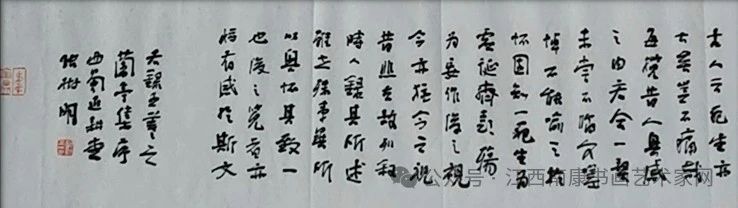 古人云死生亦
大矣豈不痛哉
每覽昔人興感
之由若合一契
未嘗不臨文嗟
悼不能喻之於
懷固知一死生為
虛誕齊彭殤
為妄作後之視
今亦猶今之視
昔悲夫故列叙
時人錄其所述
雖世殊事異所
以興懷其致一
也後之覽者亦
將有感於斯文
右錄王羲之
蘭亭集序
公众号 · 江西南康书画艺术家网